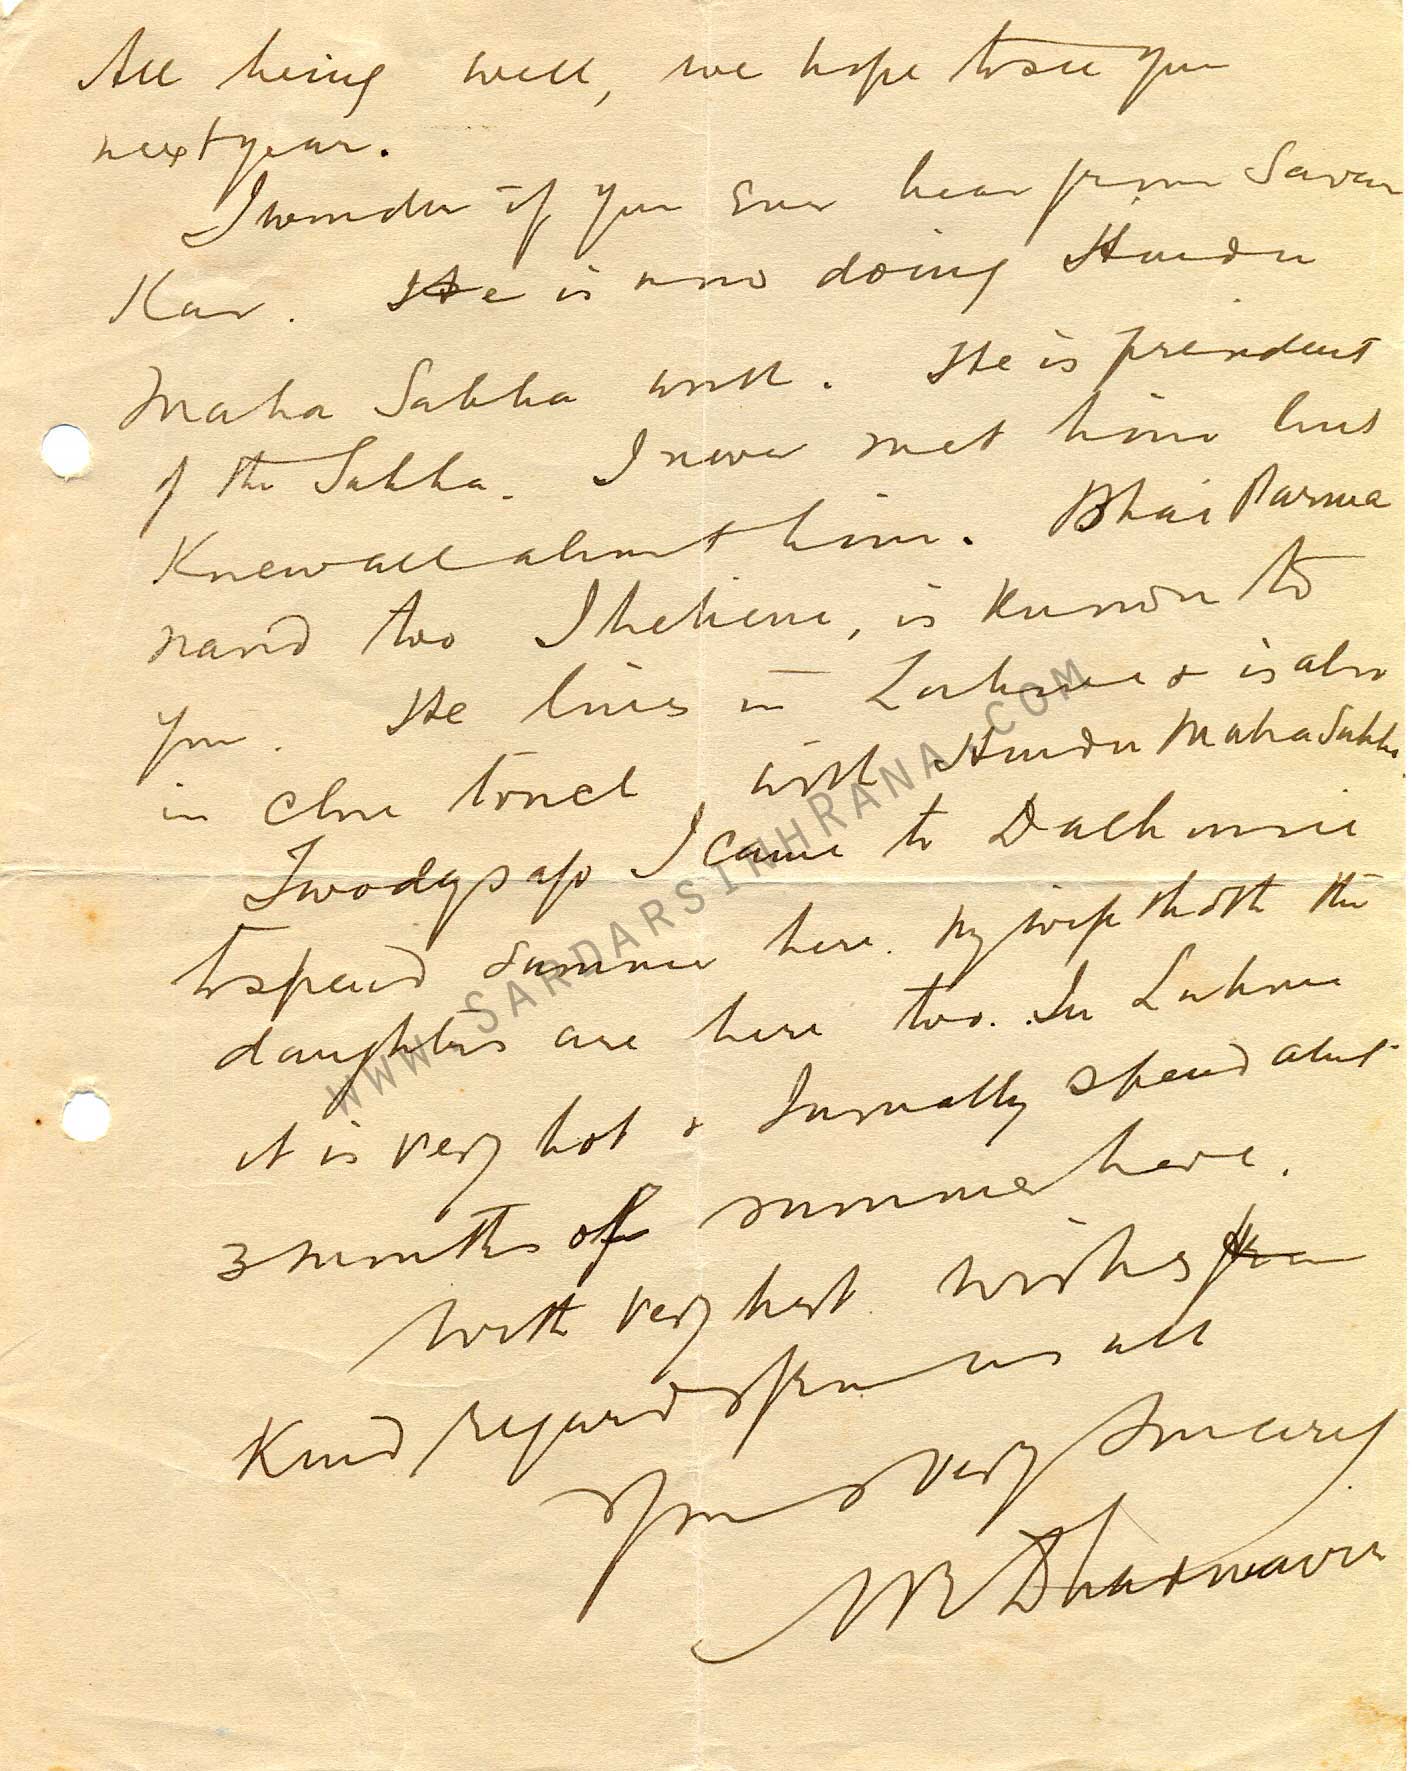 All being well, we hope to see you
next year.
I wonder if you ever hear from Savar
Kar. He is now doing Hindu
Maha Sabha work. He is president
of the Sabha. I never met him but
Knew all about him. Bhai Parma
nand too I believe, is known to
you. He lives in Lahore & is also
in close touch with Hindu Maha Sabha.
Two days ago I came to Dalhousie
to spend summer here. My wife & both the
daughters are here too. In Lahore
it is very hot & I usually spend about
3 months of summer here.
With very best wishes &
Kind regards from us all
Yours very sincerely
Dharmavir
WWW.SARDARSINHRANA.COM